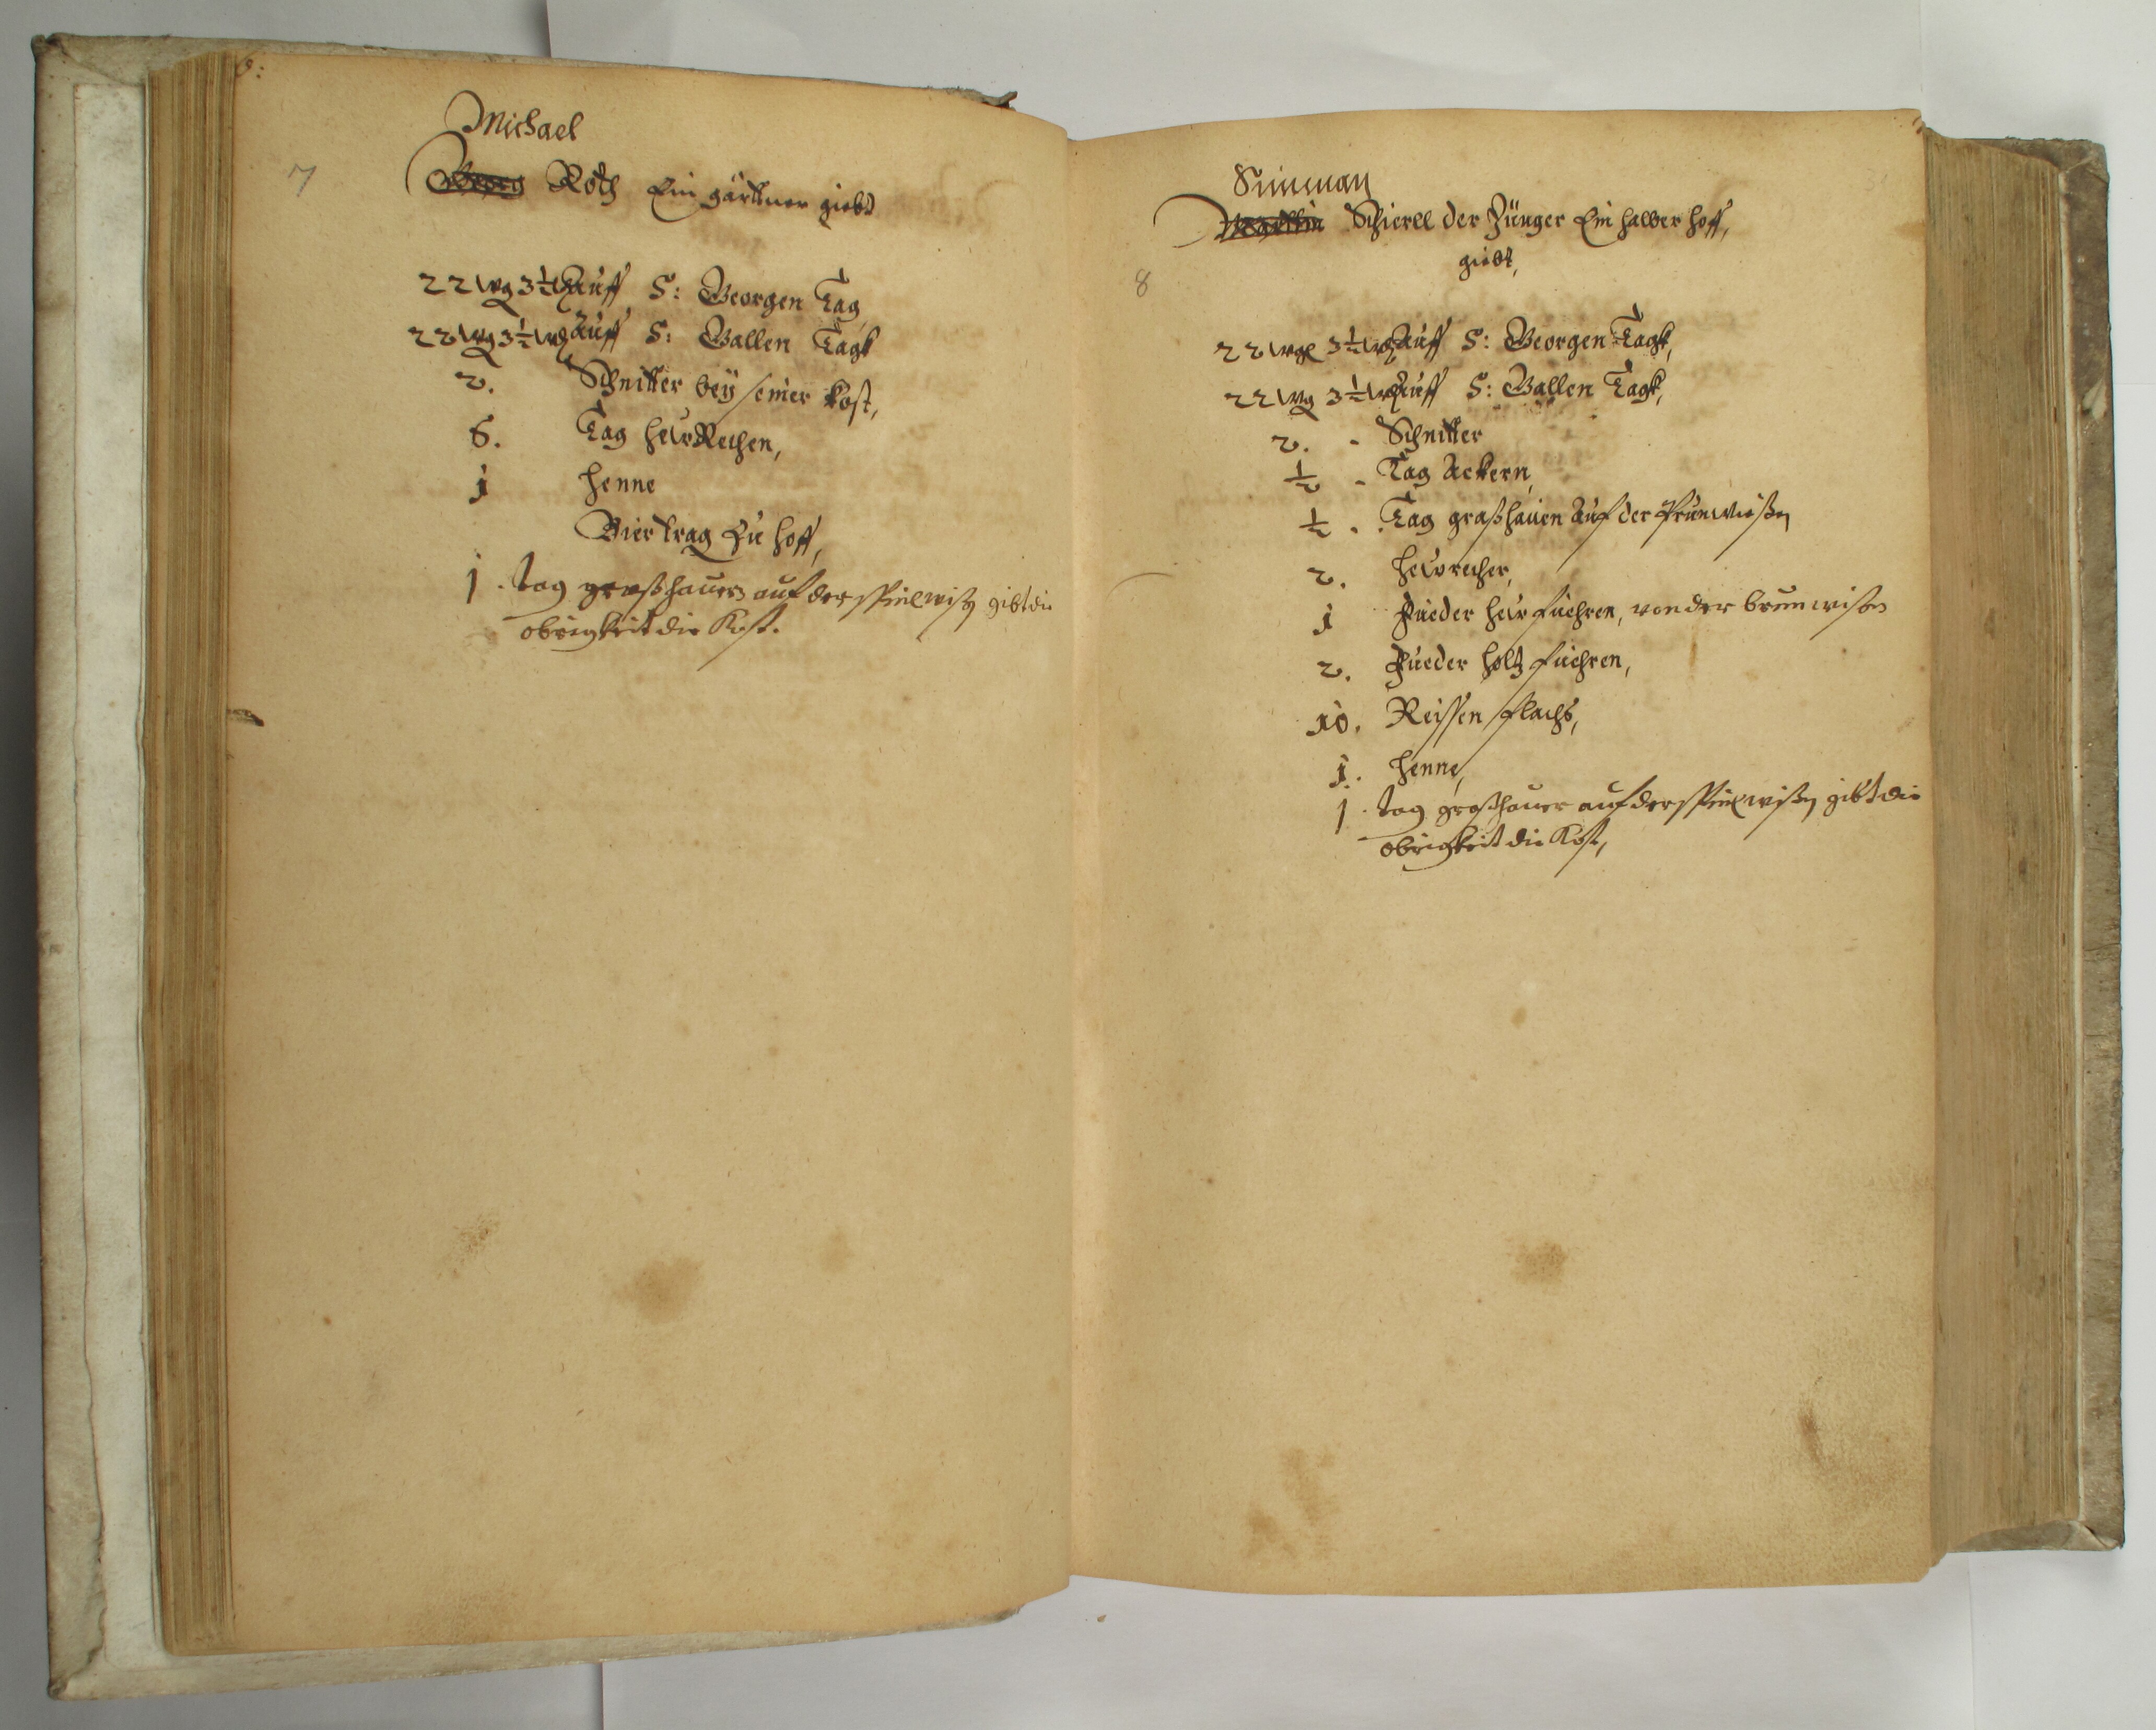 7
Michael
Georg Roth Ein gärttner giebt
22 wg 3½ Auff S: Georgen Tag
22 wg 3½ Auff S: Gallen Tagk
2. Schnitter beÿ seiner Kost,
6. Tag heÿ Rechen,
1 Henne
Biertrag Zu hoff,
1. tag graßhauen auf der wißen gibt die
obrigkeit die Kost.
8
Simman
Schierll der Jünger Ein halber hoff,
giebt,
22 wg 3½ Auff S: Georgen Tagk,
22 wg 3½ Auff S: Gallen Tagk,
2. Schnitter
½ Tag Ackern,
½ Tag graßhauen Auf der Prunwießen
2. heürecher,
1 Fueder heÿ fuehren, von der brunwisen
2. Fueder holtz fuehren,
10. Reissen flachs,
1. Henne,
1. tag graßhauen auf der wißen gibt die
obrigkeit die Kost,